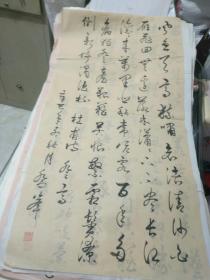 風急天高猿嘯哀渚清沙白
鳥飛回無邊落木蕭々下不盡長江
滾々來萬里悲秋常作客百年多
病獨登臺艱難苦恨繁霜鬢潦
倒新停濁酒杯 杜甫詩 登高